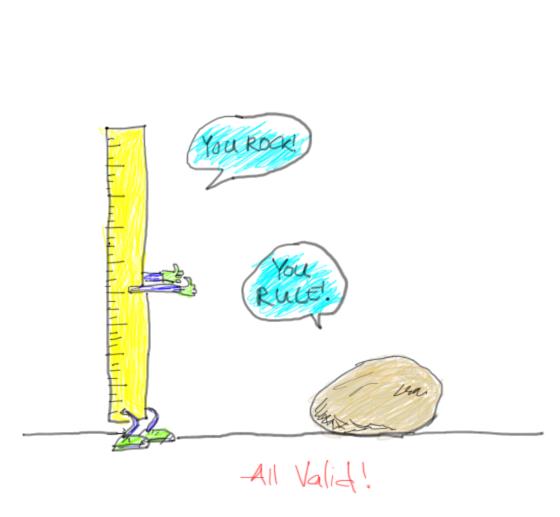 You ROCK!
You
RULE!
All Valid!